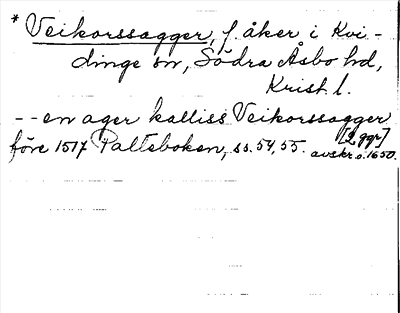 * Veikorssagger, f. åker i Kvi-
dinge sn, Södra Åsbo hd,
Krist. l.
-- en ager kalliss Veikorssagger
[2 ggr]
före 1517 Palteboken, ss. 54, 55. avskr. o. 1650.